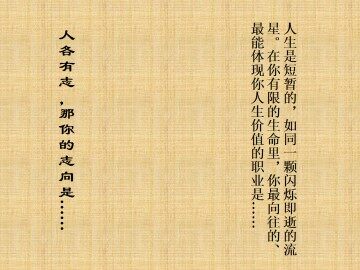 人生是短暂的，如同一颗闪烁即逝的流
星。在你有限的生命里，你最向往的、
最能体现你人生价值的职业是……
人各有志，那你的志向是……